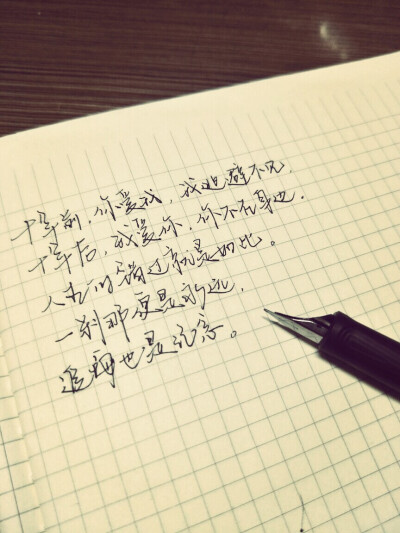 十年前，你爱我，我逃避不见．
十年后，我爱你，你不在身边．
人生的错过就是如此。
一刹那便是永远，
追悔也是纪念。